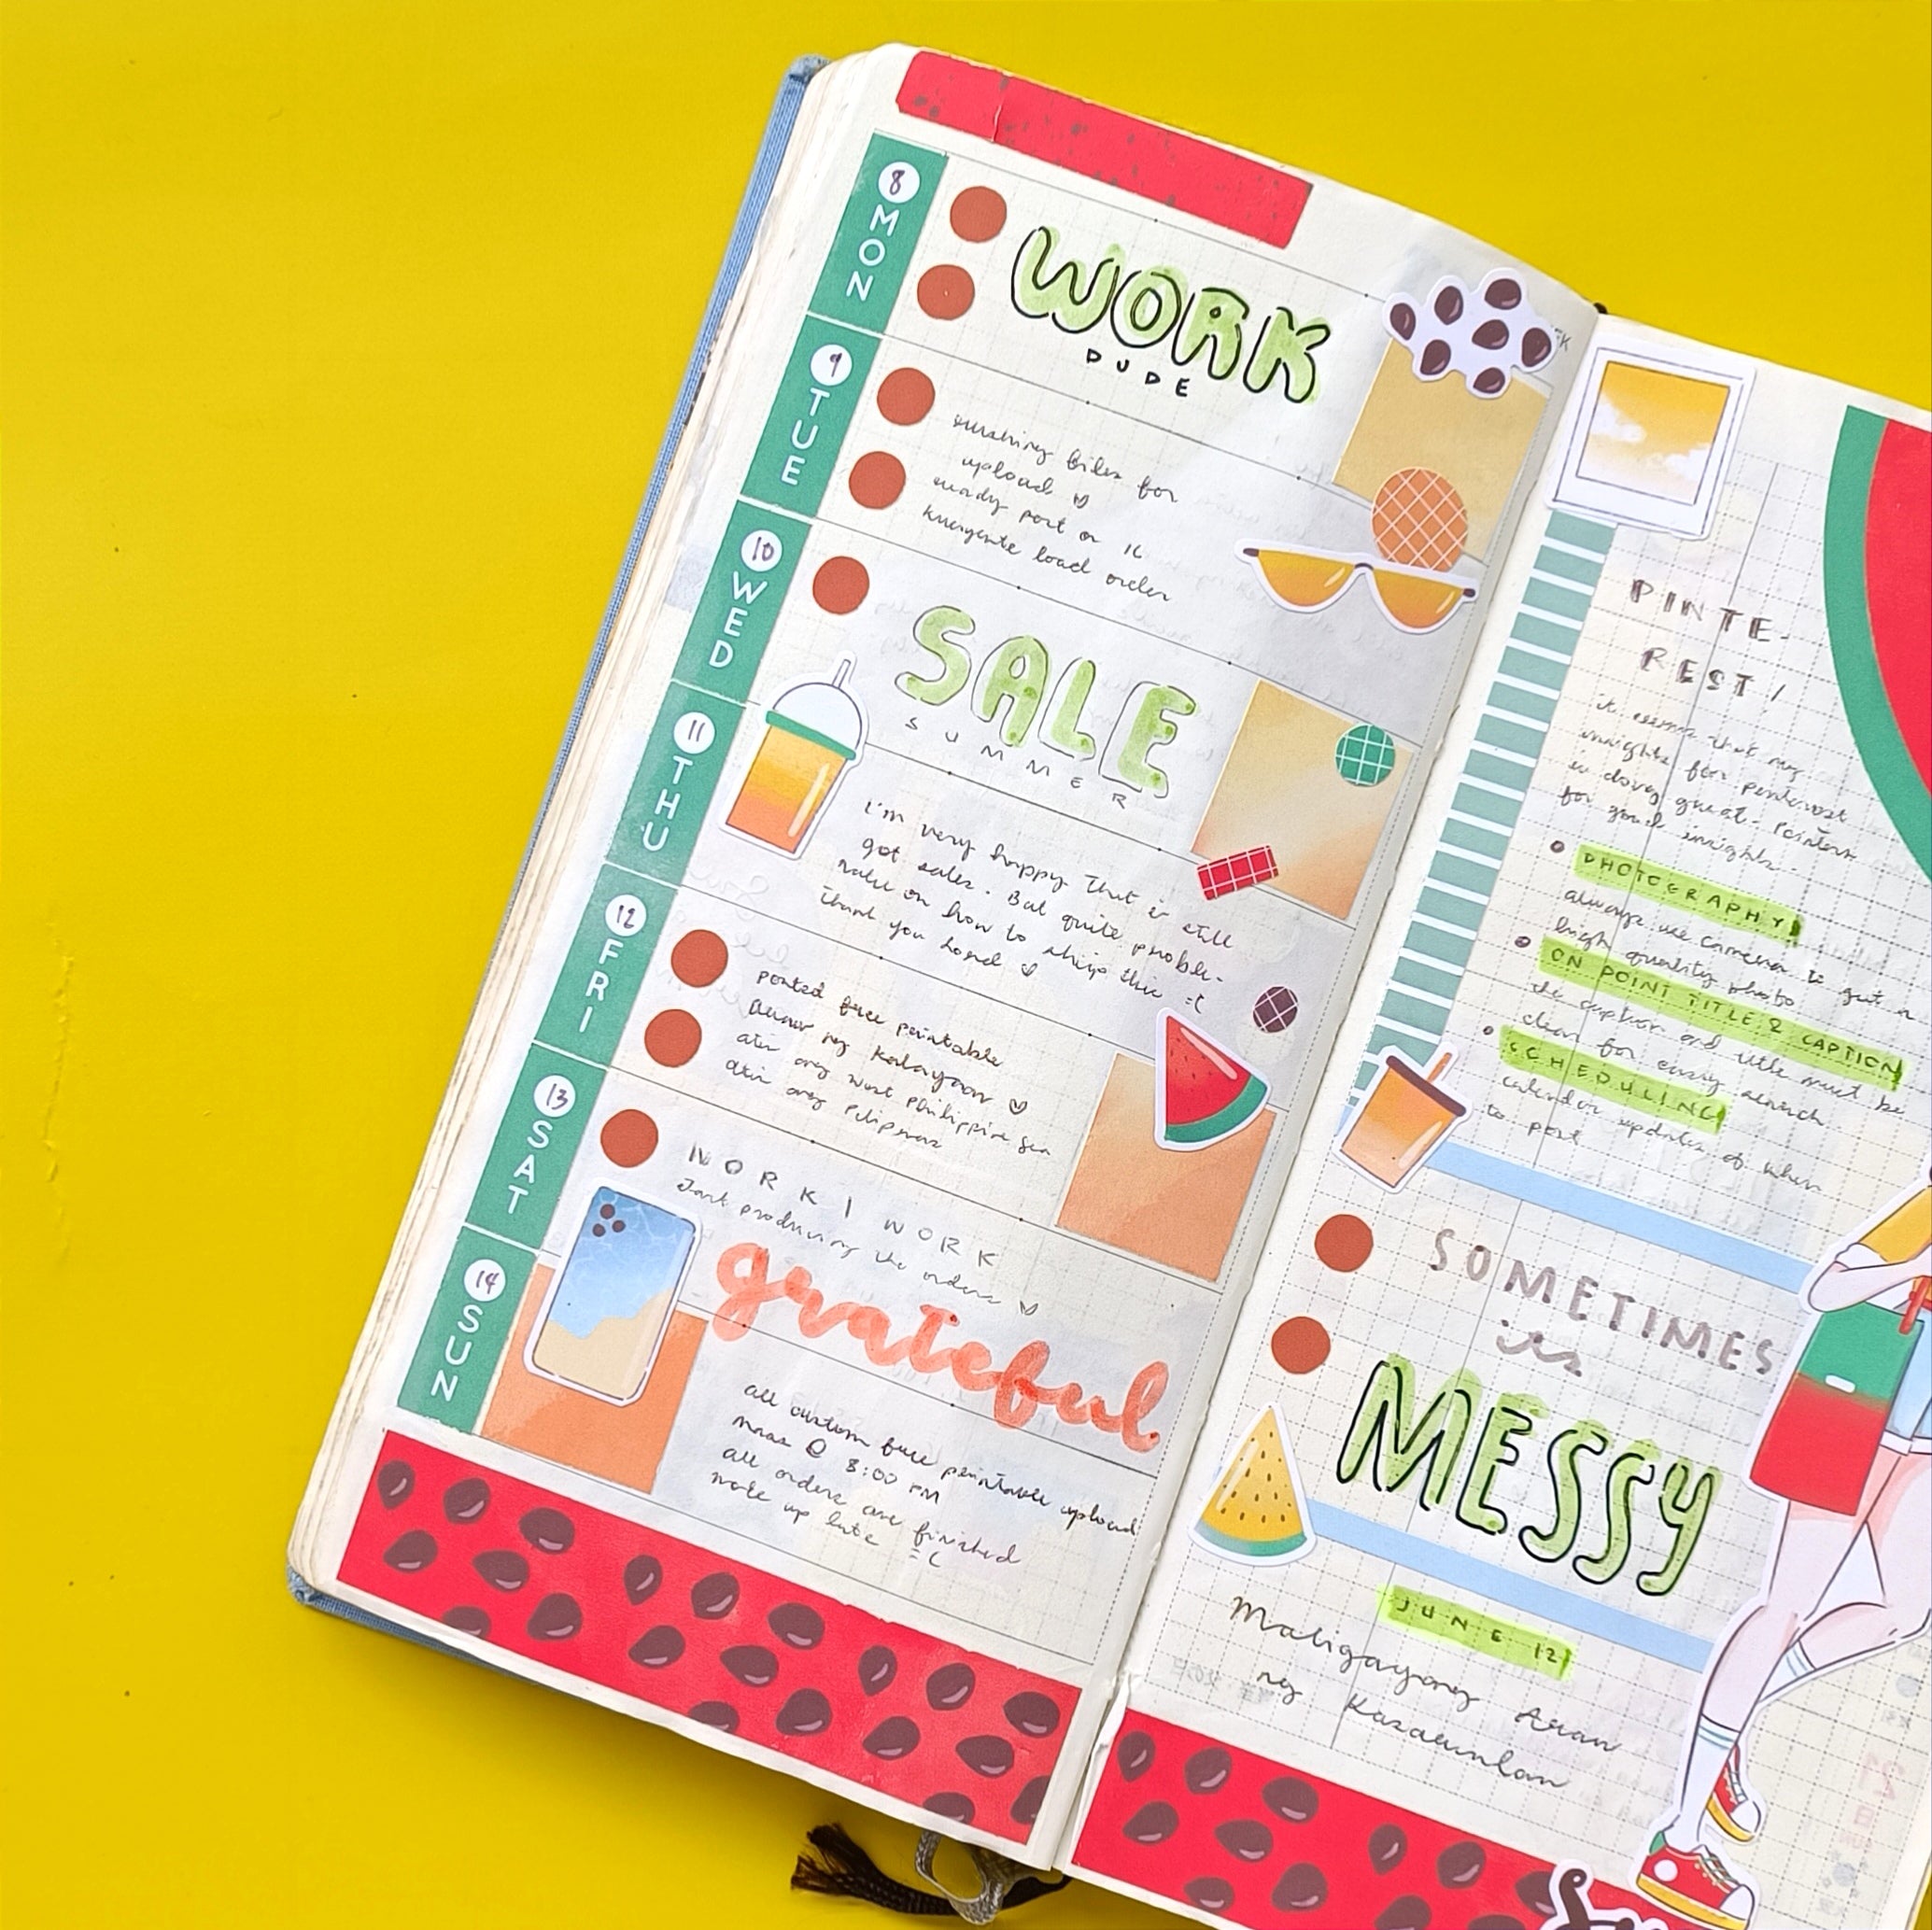 8
MON
WORK
DUDE
9
TUE
rushing files for
upload
ready post on IG
kuryente load order
10
WED
SALE
SUMMER
11
THU
I'm very happy that is still
got sales. But quite proble-
matic on how to ships this :(
Thank you Lord
12
FRI
posted free printable
Araw ng Kalayaan
atin ang west philippine sea
atin ang Pilipinas
13
SAT
WORK I WORK
Just producing the orders
grateful
14
SUN
all custom free printable upload
mras @ 8:00 PM
all orders are finished
woke up late =(
PINTE-
REST /
it seems that my
insights for pinterest
is doing great. Pointers
for good insights.
PHOTOGRAPHY
always use camera to get a
high quality photo
ON POINT TITLE & CAPTION
the caption and title must be
clear for easy search
SCHEDULING
calendar updates of when
to post
SOMETIMES
is
MESSY
JUNE 12
Maligayang Araw
ng Kasarinlan